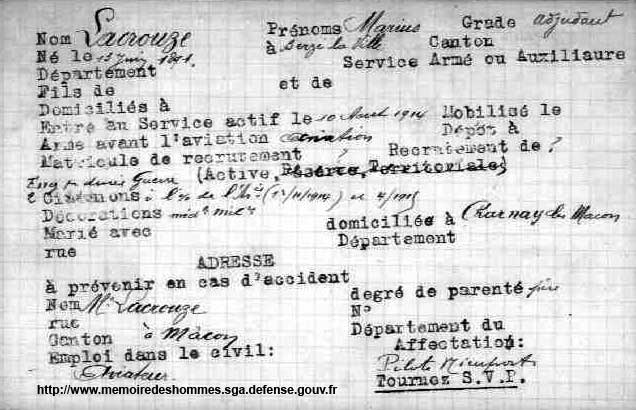 Nom Lacrouze Prénoms Marius Grade adjudant
Né le 13 juin 1891. à Berzé la Ville Canton
Département Service Armé ou Auxiliaure
Fils de et de
Domiciliés à
Entré au Service actif le 10 Août 1914 Mobilisé le
Arme avant l'aviation aviation Dépôt à
Matricule de recrutement ? Recrutement de ?
Eng pr durée Guerre (Active, Réserve, Territoriale)
2 Citations à l'O/ de l' (13/11/1914) et 4/1915
Décorations médle milre domiciliée à Charnay les Macon
Marié avec Département
rue
ADRESSE
à prévenir en cas d'accident
Nom Mr Lacrouze degré de parenté père
rue N°
Canton à Mâcon Département du
Emploi dans le civil: Affectation:
Aviateur Pilote Nieuport
Tournez S.V.P.
http://www.memoiredeshommes.sga.defense.gouv.fr